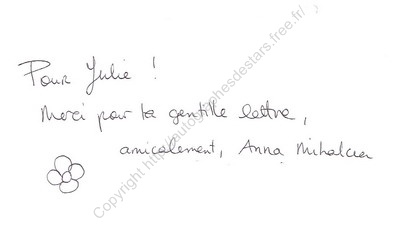 Pour Julie !
Merci pour ta gentille lettre,
amicalement, Anna Mihalcea
Copyright http://autographesdestars.free.fr/